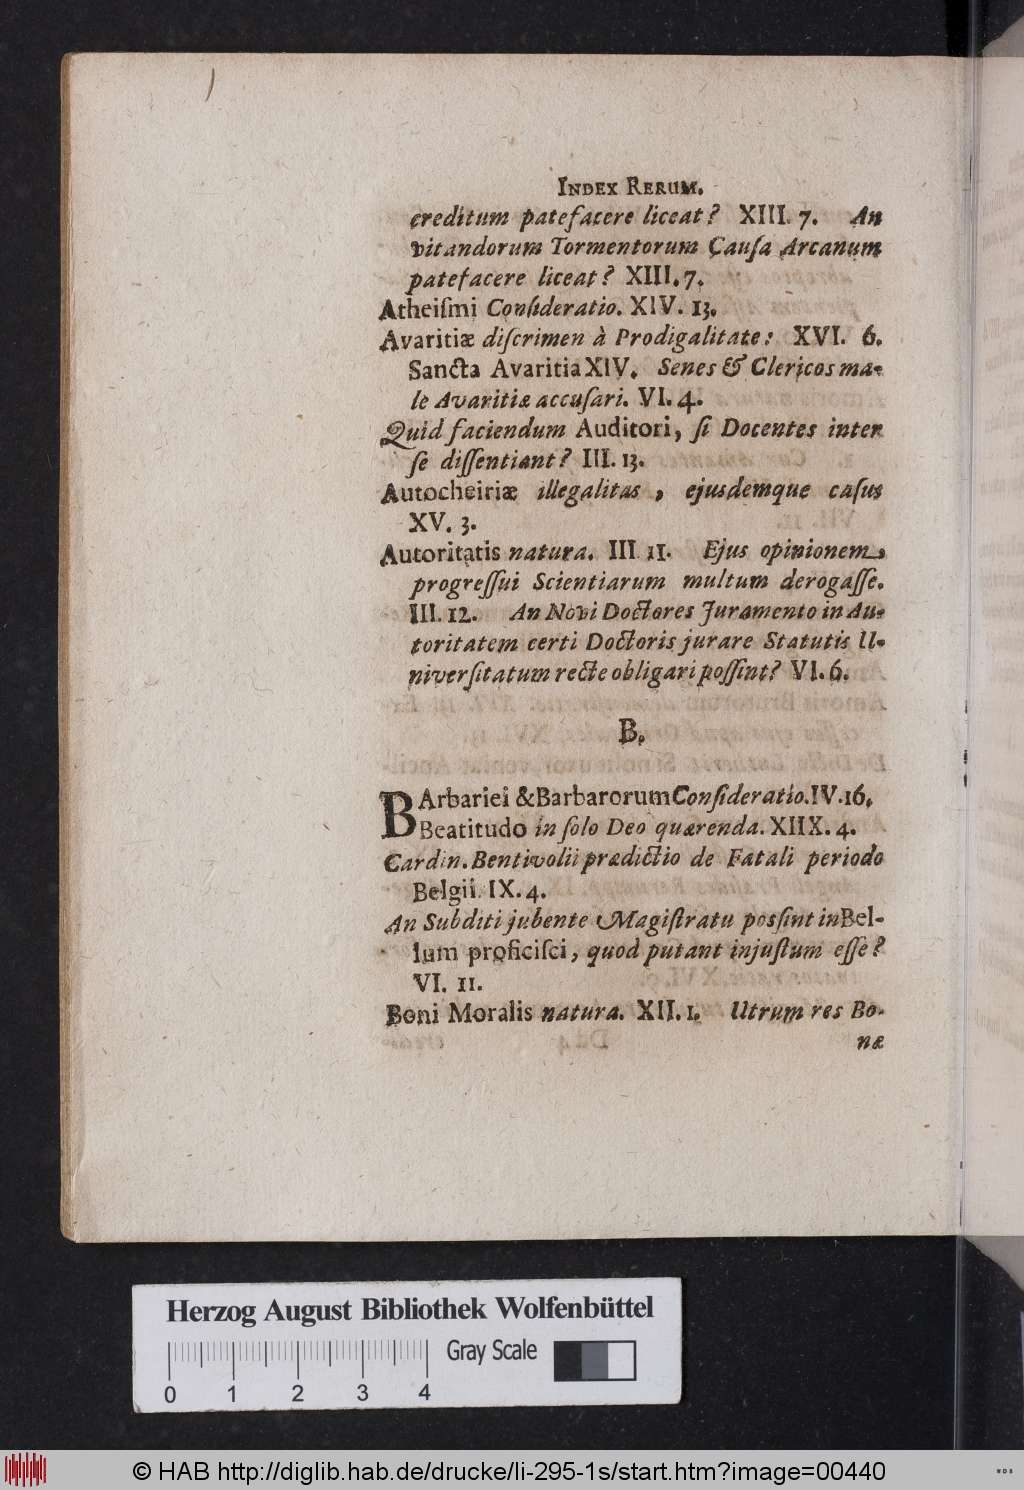 INDEX RERUM.
creditum patefacere liceat? XIII. 7. An
vitandorum Tormentorum Cauſa Arcanum
patefacere liceat? XIII. 7.
Atheiſmi Conſideratio. XIV. 13.
Avaritiæ diſcrimen à Prodigalitate: XVI. 6.
Sancta Avaritia XIV. Senes & Clericos ma-
le Avaritiæ accuſari. VI. 4.
Quid faciendum Auditori, ſi Docentes inter
ſe diſſentiant? III. 13.
Autocheiriæ illegalitas, ejusdemque caſus
XV. 3.
Autoritatis natura. III 11. Ejus opinionem,
progreſſui Scientiarum multum derogaſſe.
III. 12. An Novi Doctores Juramento in Au-
toritatem certi Doctoris jurare Statutis U-
niverſitatum recte obligari poſſint? VI. 6.
B.
BArbariei & Barbarorum Conſideratio. IV. 16.
Beatitudo in ſolo Deo quærenda. XIIX. 4.
Cardin. Bentivolii prædictio de Fatali periodo
Belgii. IX. 4.
An Subditi jubente Magiſtratu posſint in Bel-
lum proficiſci, quod putant injuſtum eſſe?
VI. 11.
Boni Moralis natura. XII. 1. Utrum res Bo-
næ
Herzog August Bibliothek Wolfenbüttel
Gray Scale
0 1 2 3 4
© HAB http://diglib.hab.de/drucke/li-295-1s/start.htm?image=00440